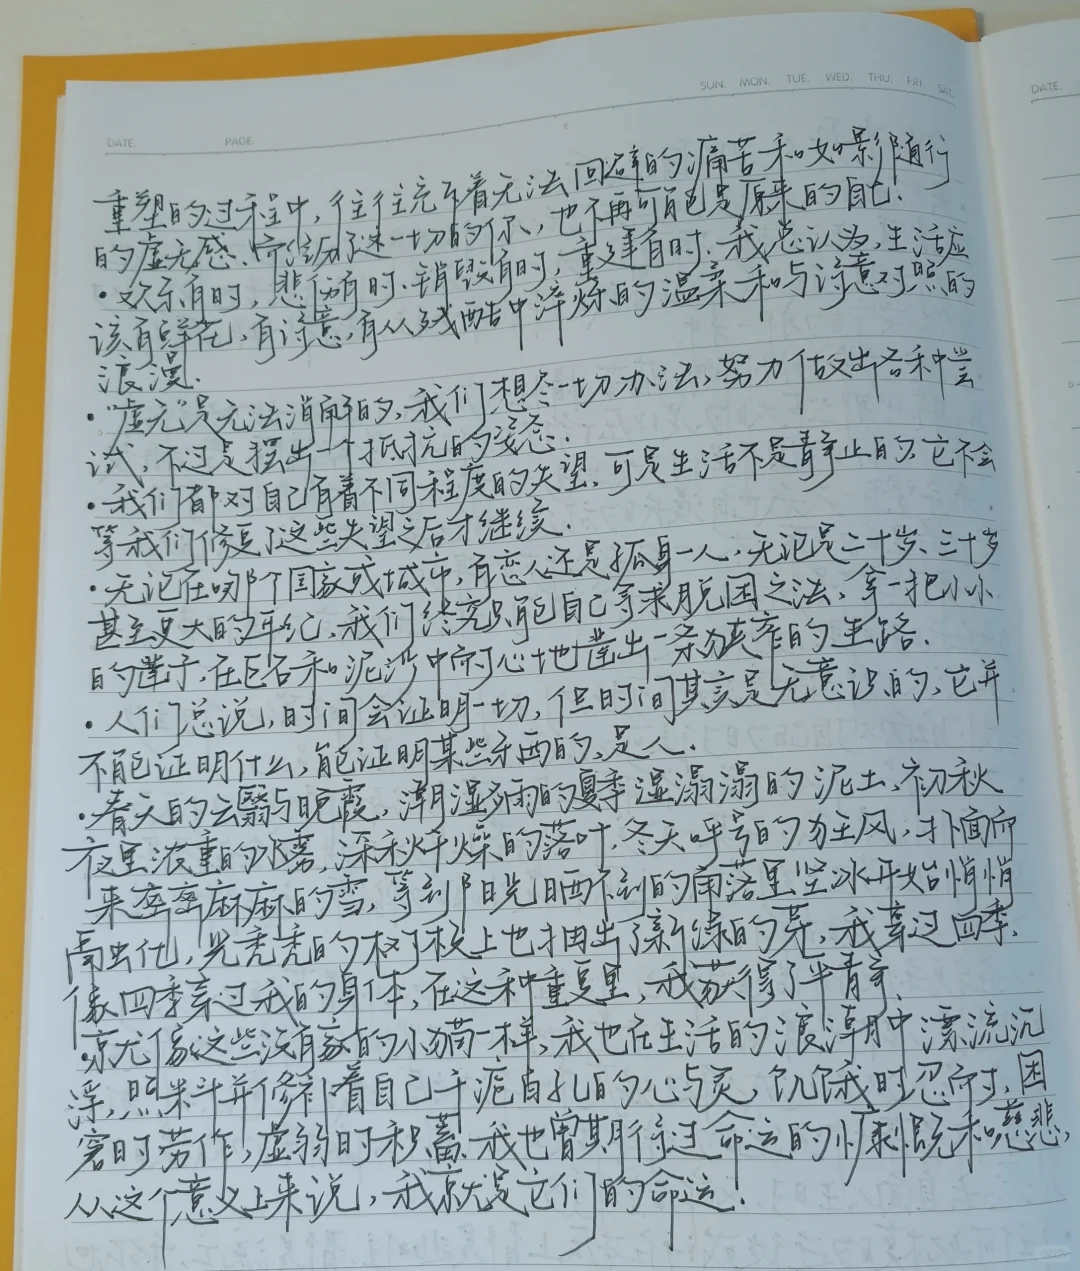 SUN. MON. TUE. WED. THU. FRI. SAT.
DATE PAGE DATE.
重塑的过程中，往往充斥着无法回避的痛苦和如影随行
的虚无感、而经历了这一切的你、也不再可能是原来的自己.
·欢乐有时，悲伤有时、销毁有时，重建有时.我总认为，生活应
该有鲜花，有诗意，有从残酷中淬炼的温柔和与诗意对照的
浪漫.
·"虚无"是无法消解的，我们想尽一切办法，努力做出各种尝
试，不过是摆出一个抵抗的姿态.
·我们都对自己有着不同程度的失望，可是生活不是静止的，它不会
等我们修复了这些失望之后才继续.
·无论在哪个国家或城市，有恋人还是孤身一人.无论是二十岁、三十岁
甚至更大的年纪，我们终究只能自己寻求脱困之法，拿一把小小
的凿子，在巨石和泥沙中耐心地凿出一条狭窄的生路.
·人们总说，时间会证明一切，但时间其实是无意识的，它并
不能证明什么，能证明某些东西的，是人.
·春天的云翳与晚霞，潮湿多雨的夏季湿溻溻的泥土，初秋
夜里浓重的水雾，深秋干燥的落叶，冬天呼号的狂风，扑面而
来密密麻麻的雪，等到阳光晒不到的角落里坚冰开始悄悄
融化，光秃秃的树枝上也抽出了新绿的芽，我穿过四季，
像四季穿过我的身体，在这种重复里，我获得了平静.
·就像这些没有家的小猫一样，我也在生活的浪潮中漂流沉
浮，照料并修补着自己千疮百孔的心与灵，饥饿时忍耐，困
窘时劳作，虚弱时积蓄.我也曾期待过命运的慷慨和慈悲，
从这个意义上来说，我就是它们的命运.